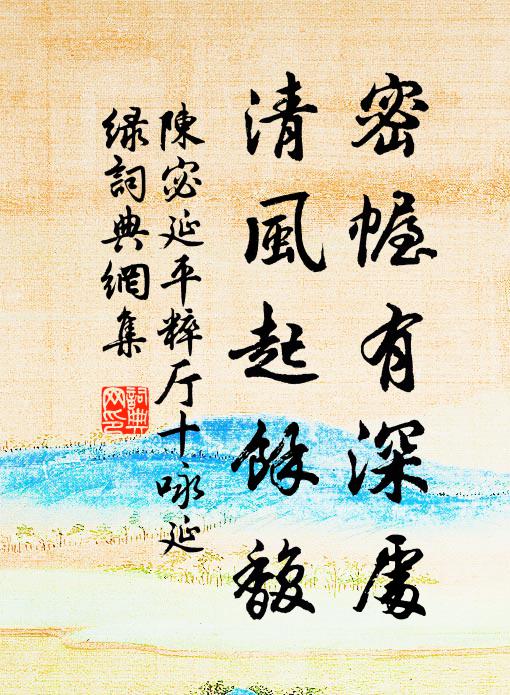 密幄有深處
清風起餘馥
陳宓延平粹厅十咏延
緑詞典網集
詞典
网印